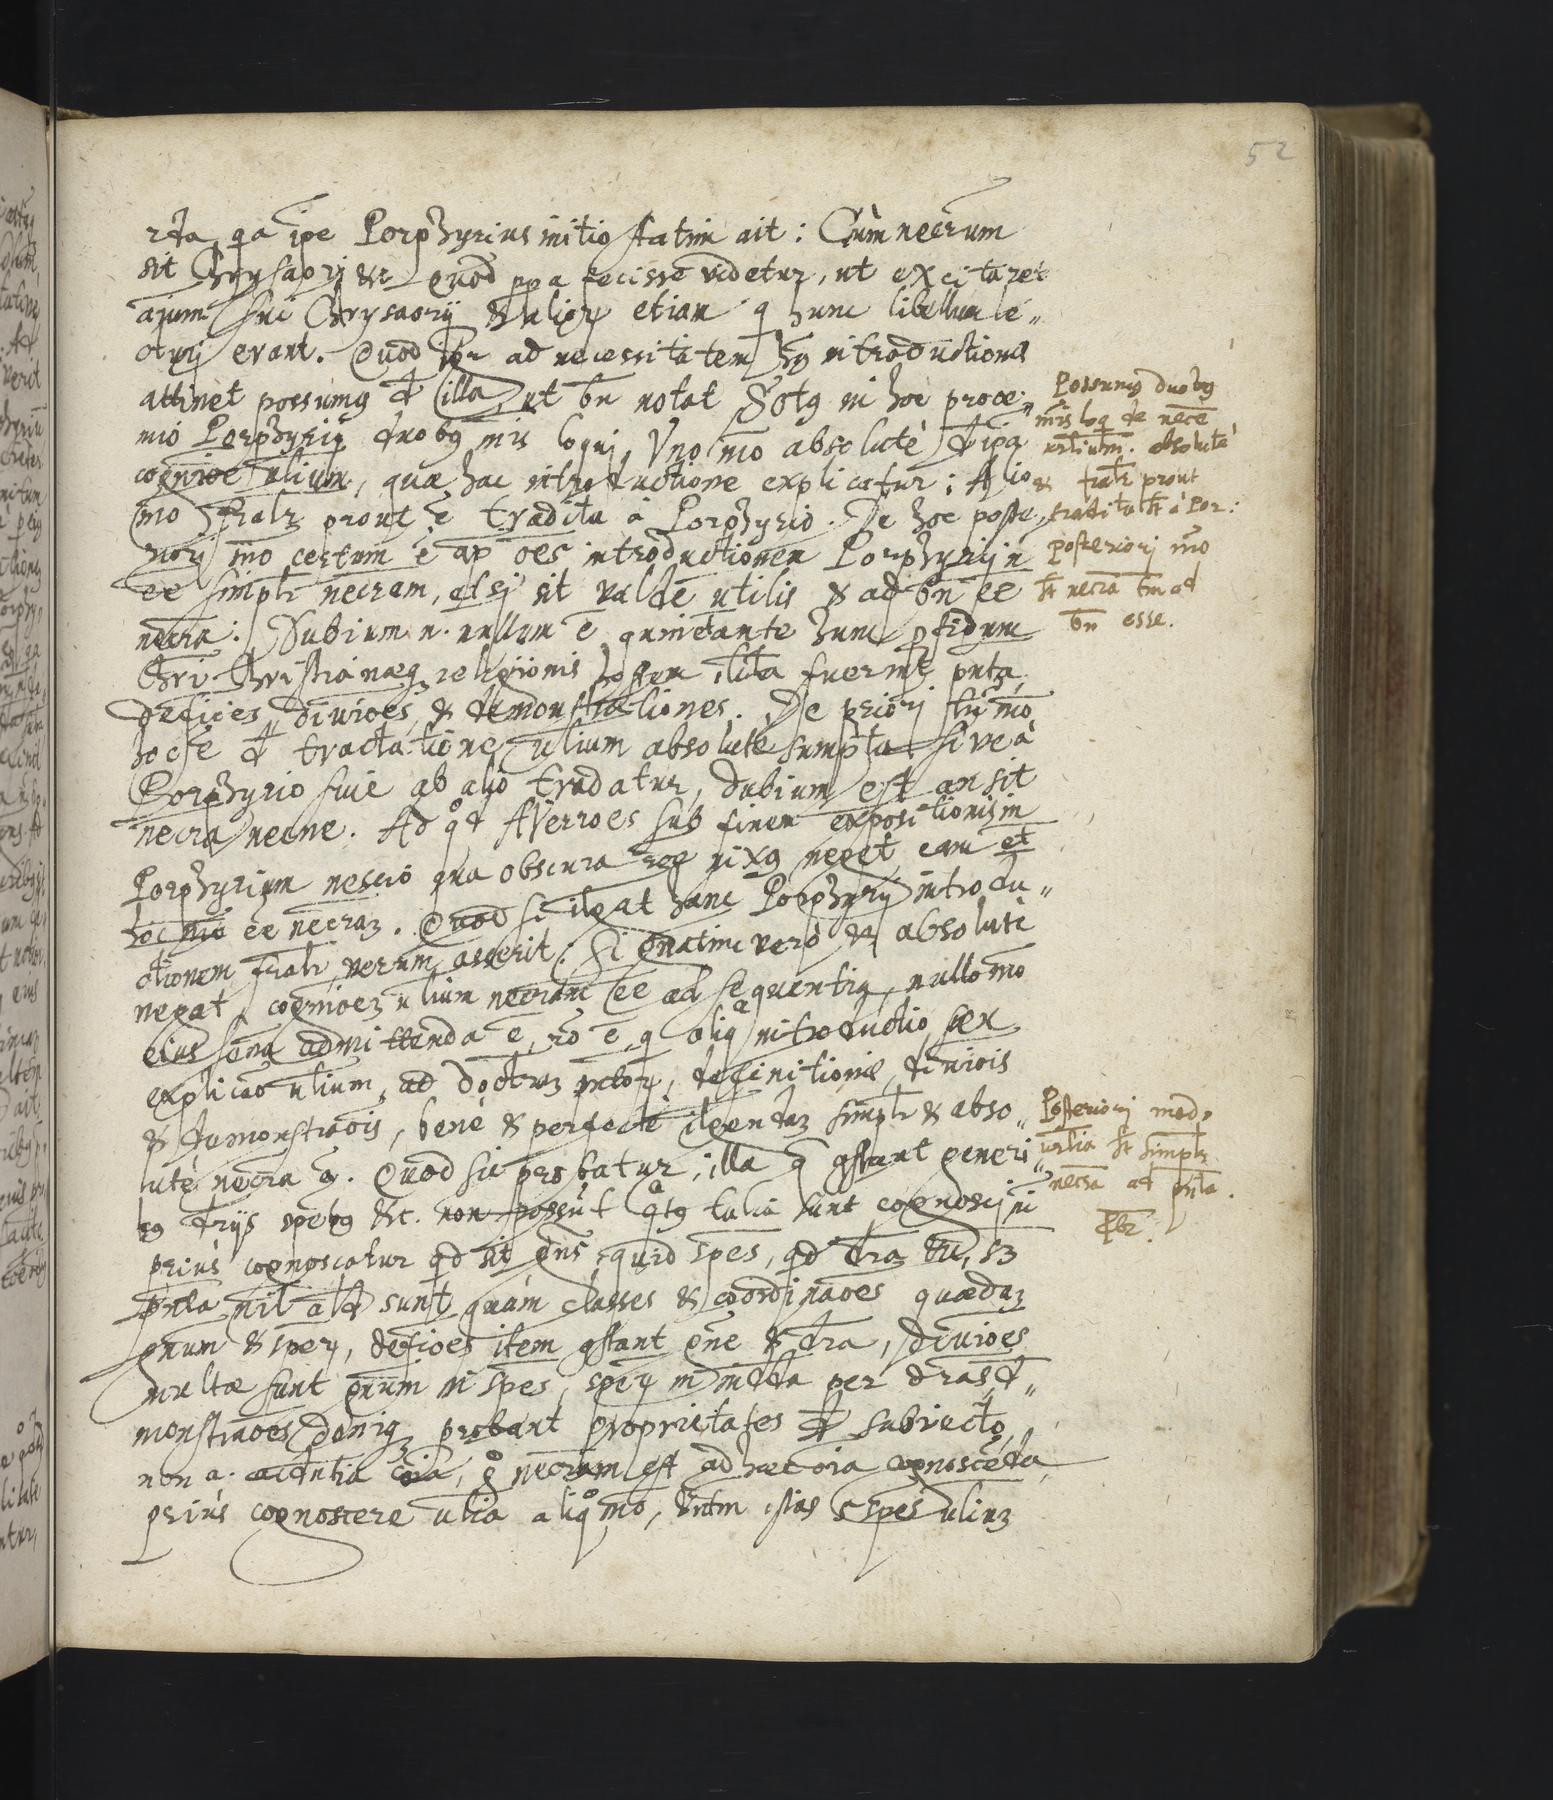 52
rta, qa ipe Porphyrius initio statim ait: Cùm necrum
sit Chrysaorj &c Quod ppa fecisse vĩdetur, ut excitaret
ajum sui Chrysaorij & aliorz etiam q hunc libellum le„
cturj erant. Quod igr ad necessitatem hg introductionis
attinet possumg de illa, ut bn notat Sotg in hoc prooe„
mio Porphyrij duobg mis loquj, Uno mo absolutè de ipa
cognioe ulium, quæ hac introductione explicatur; Alio
mo fralr prout ē tradita à Porphyrio. De hoc poste„
riorj mo certum ē ap oēs introductionem Porphyrij n
ēe simplr necram, etsj sit valdè utilis & ad bn ēe
necra: Dubium n. nullum ē quin etante hunc pfidum
Chri Christianæqz religionis hostem, ilita fuerint pnta,
defioes, diuioes, & demonstrationes. De priorj tn mo
hoc ē de tractatione ulium absolutè sumpta sive à
Porphyrio siue ab alio tradatur, dubium est an sit
necra necne. Ad qd Averroes sub finem expositionis in
Porphyrium nescio qua obscura roe nixg negat eam et
hoc mo ēe necraz. Quod si ilgat hanc Porphyrij introdu„
ctionem fralr verum asserit: Si gnatim verò & absolutè
negat cognioez ulium necram ēe ad sequentia, nullo mo
eius sena admittenda ē, ro ē, q aliqa introductio, seu
explicao ulium, ad doctraz pntorz, definitionis, diuiois
& demonstraois, benè & perfectè ilgendaz simplr & abso„
lutè necra ē. Quod sic probatur; illa q gstant generi„
bg drijs spebg &c. non possut qatg talia sunt cognoscj ni
priùs cognoscatur qd sit gns, quid spes, qd dra &c, sz
pnta nil aliud sunt quàm classes & coordinaoes quædaz
gnum & sperz, defioes item gstant gne & dra, diuioes
multæ sunt gnum in spes, sperz in indda per dras, de„
monstraoes deniqz probant proprietates de subiecto,
non a. accntia coia, g necrum est ad hæc oia cognoscēda,
priùs cognoscere ulia aliqo mo, vntm istas 5 spes uliuz
Possumg duobg
mis loq de nece
urlium. absolutè
& fralr prout
tradita st à Por:
Posteriorj mo
st necra tm ad
bn esse.
Posteriorj modo
urlia st simplr
necra ad pnta.
Pbr.